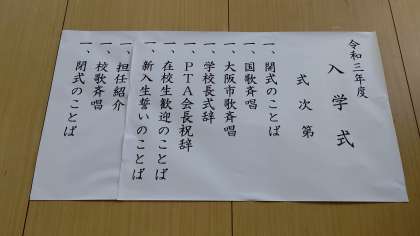 令和三年度
入学式
式次第
一、開式のことば
一、国歌斉唱
一、大阪市歌斉唱
一、学校長式辞
一、PTA会長祝辞
一、在校生歓迎のことば
一、新入生誓いのことば
一、担任紹介
一、校歌斉唱
一、閉式のことば